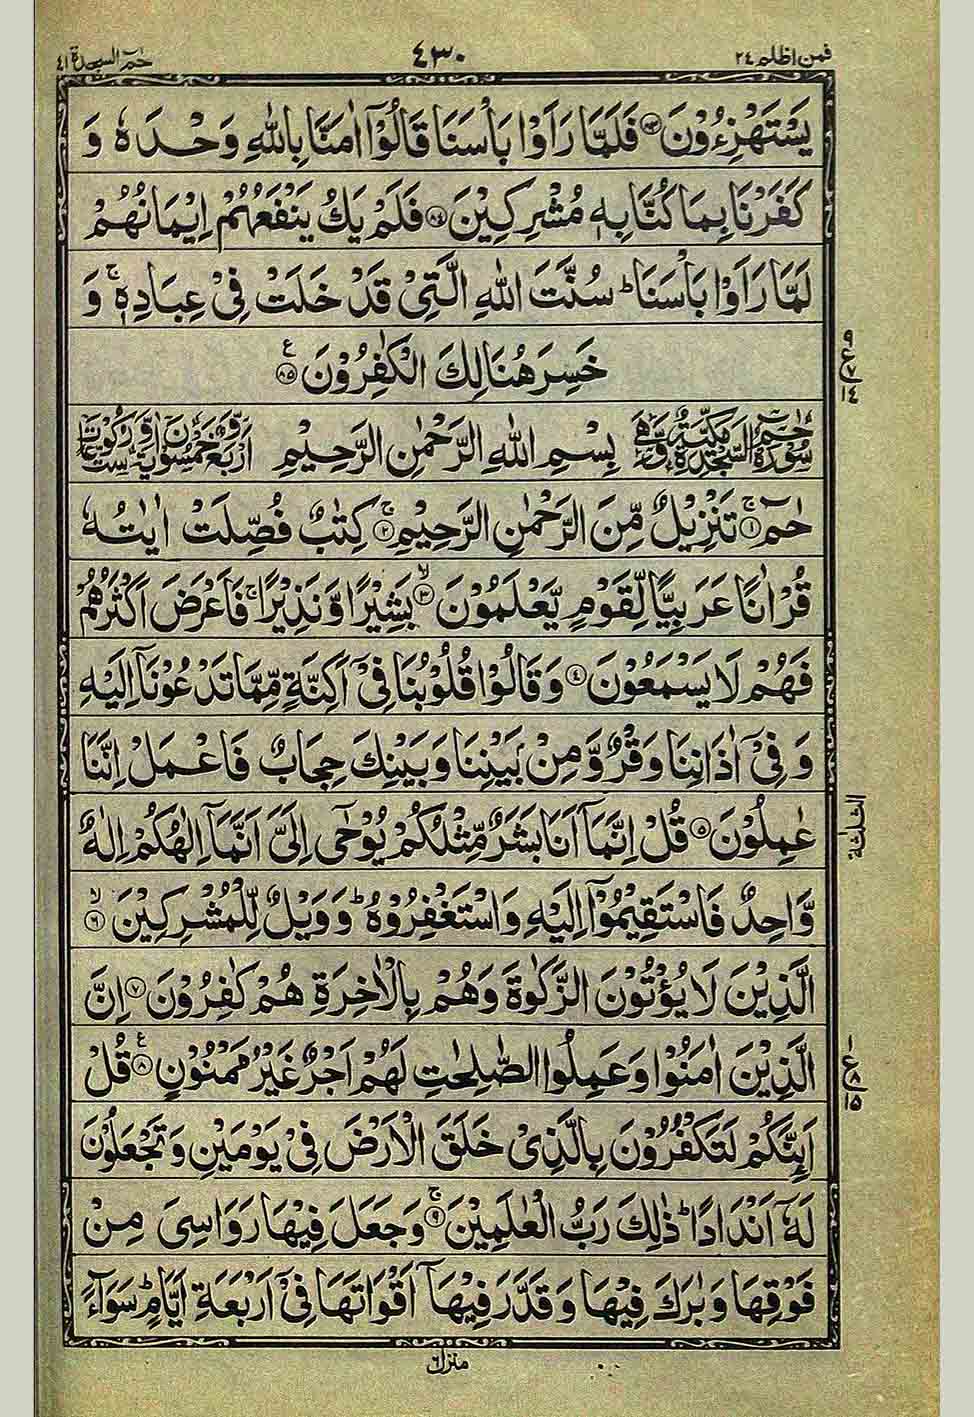 فمن اظلم ٢٤
٤٣٠
حٰمٓ السجدة ٤١
يَسْتَهْزِءُوْنَ ﴿٨٣﴾ فَلَمَّا رَاَوْا بَاْسَنَا قَالُوْٓا اٰمَنَّا بِاللّٰهِ وَحْدَهٗ وَ
كَفَرْنَا بِمَا كُنَّا بِهٖ مُشْرِكِيْنَ ﴿٨٤﴾ فَلَمْ يَكُ يَنْفَعُهُمْ اِيْمَانُهُمْ
لَمَّا رَاَوْا بَاْسَنَا ؕ سُنَّتَ اللّٰهِ الَّتِيْ قَدْ خَلَتْ فِيْ عِبَادِهٖ ۚ وَ
خَسِرَ هُنَالِكَ الْكٰفِرُوْنَ ﴿٨٥﴾ ع
ع ٩ ٧ ١٤
سُوْرَةُ حٰمٓ السَّجْدَةِ مَكِّيَّةٌ وَّهِيَ بِسْمِ اللّٰهِ الرَّحْمٰنِ الرَّحِيْمِ اَرْبَعٌ وَّخَمْسُوْنَ اٰيَةً وَّسِتُّ رُكُوْعَاتٍ
حٰمٓ ﴿١﴾ ۚ تَنْزِيْلٌ مِّنَ الرَّحْمٰنِ الرَّحِيْمِ ﴿٢﴾ ۚ كِتٰبٌ فُصِّلَتْ اٰيٰتُهٗ
قُرْاٰنًا عَرَبِيًّا لِّقَوْمٍ يَّعْلَمُوْنَ ﴿٣﴾ ۙ بَشِيْرًا وَّنَذِيْرًا ۚ فَاَعْرَضَ اَكْثَرُهُمْ
فَهُمْ لَا يَسْمَعُوْنَ ﴿٤﴾ وَقَالُوْا قُلُوْبُنَا فِيْٓ اَكِنَّةٍ مِّمَّا تَدْعُوْنَآ اِلَيْهِ
وَفِيْٓ اٰذَانِنَا وَقْرٌ وَّمِنْۢ بَيْنِنَا وَبَيْنِكَ حِجَابٌ فَاعْمَلْ اِنَّنَا
عٰمِلُوْنَ ﴿٥﴾ قُلْ اِنَّمَآ اَنَا بَشَرٌ مِّثْلُكُمْ يُوْحٰٓى اِلَيَّ اَنَّمَآ اِلٰهُكُمْ اِلٰهٌ
الثلثة
وَّاحِدٌ فَاسْتَقِيْمُوْٓا اِلَيْهِ وَاسْتَغْفِرُوْهُ ؕ وَوَيْلٌ لِّلْمُشْرِكِيْنَ ﴿٦﴾ ۙ
الَّذِيْنَ لَا يُؤْتُوْنَ الزَّكٰوةَ وَهُمْ بِالْاٰخِرَةِ هُمْ كٰفِرُوْنَ ﴿٧﴾ اِنَّ
الَّذِيْنَ اٰمَنُوْا وَعَمِلُوا الصّٰلِحٰتِ لَهُمْ اَجْرٌ غَيْرُ مَمْنُوْنٍ ﴿٨﴾ ع قُلْ
ع ١ ٨ ١٥
اَئِنَّكُمْ لَتَكْفُرُوْنَ بِالَّذِيْ خَلَقَ الْاَرْضَ فِيْ يَوْمَيْنِ وَتَجْعَلُوْنَ
لَهٗٓ اَنْدَادًا ؕ ذٰلِكَ رَبُّ الْعٰلَمِيْنَ ﴿٩﴾ ۚ وَجَعَلَ فِيْهَا رَوَاسِيَ مِنْ
فَوْقِهَا وَبٰرَكَ فِيْهَا وَقَدَّرَ فِيْهَآ اَقْوَاتَهَا فِيْٓ اَرْبَعَةِ اَيَّامٍ ؕ سَوَآءً
منزل ٦